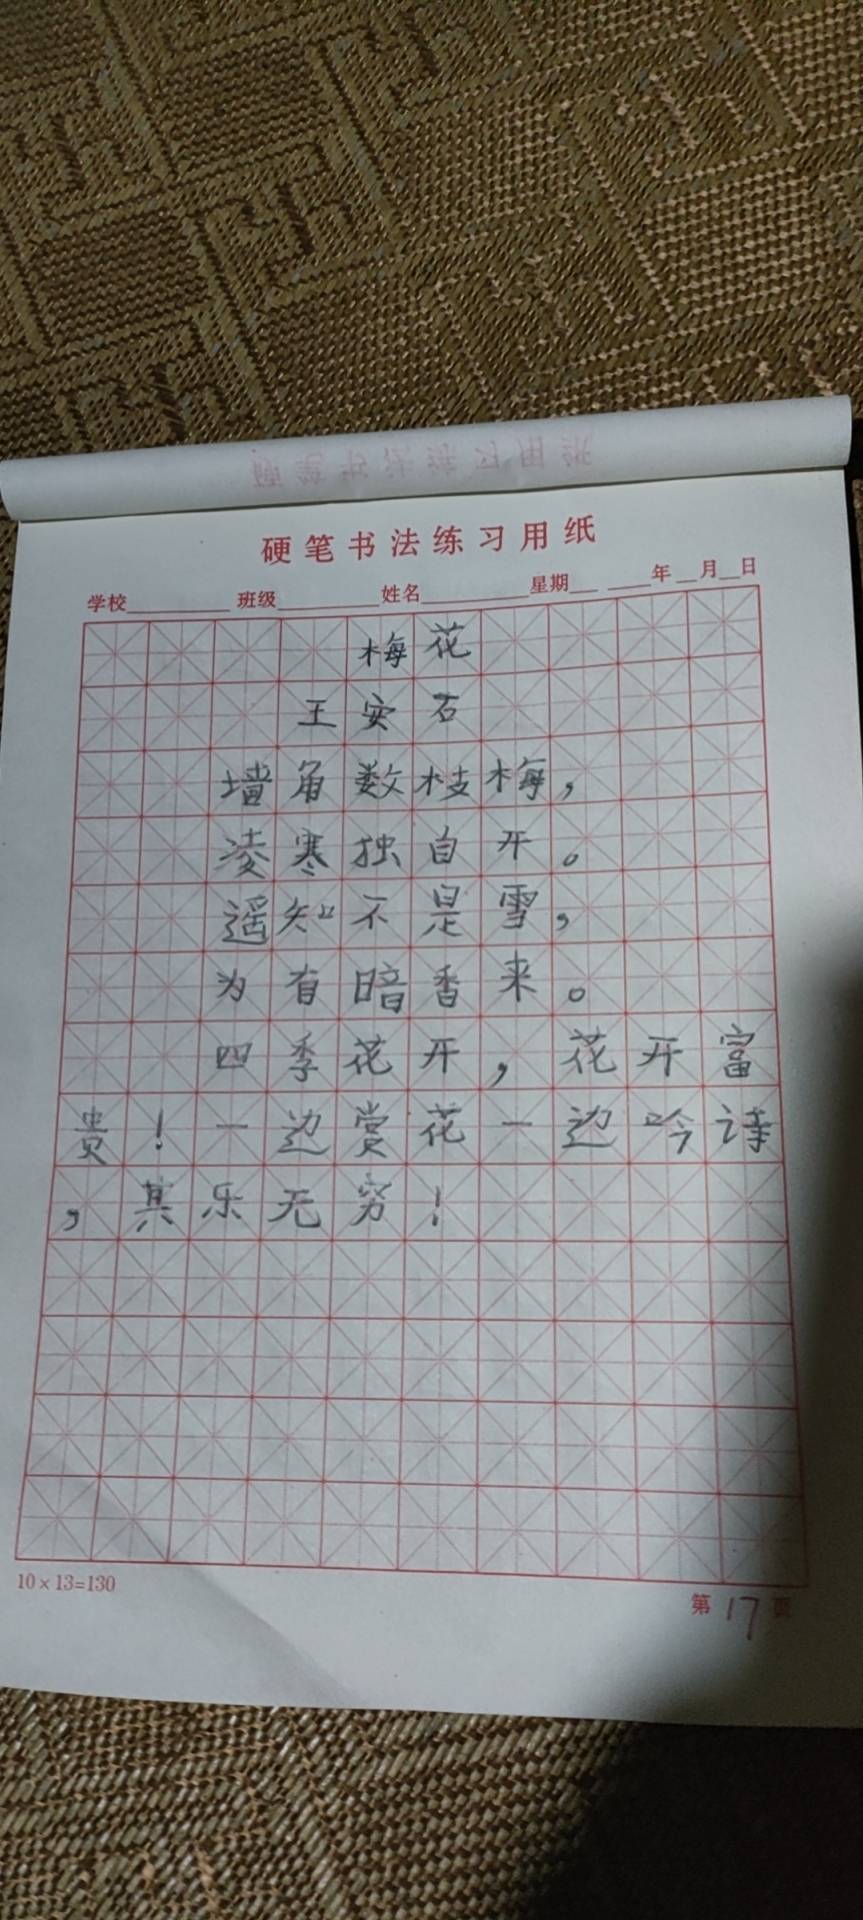 硬笔书法练习用纸
学校 班级 姓名 星期 年 月 日
梅花
王安石
墙角数枝梅，
凌寒独自开。
遥知不是雪，
为有暗香来。
四季花开，花开富
贵！一边赏花一边吟诗
，其乐无穷！
10×13=130
第17页